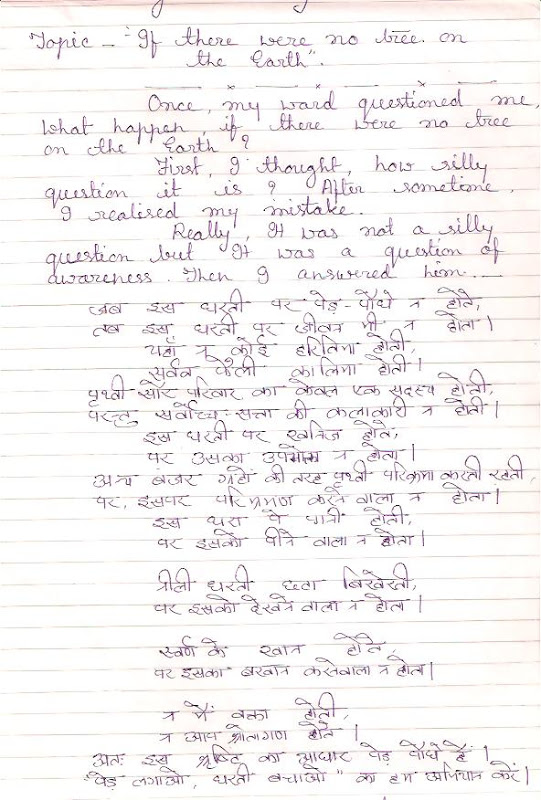 Topic - "If there were no tree on
the Earth".
Once, my ward questioned me,
what happen, if there were no tree
on the Earth?
First, I thought, how silly
question it is? After sometime,
I realised my mistake.
Really, It was not a silly
question but It was a question of
awareness. Then I answered him...
जब इस धरती पर पेड़-पौधे न होते,
तब इस धरती पर जीवन भी न होता।
यहाँ न कोई हरितिमा होती,
सर्वत्र फैली कालिमा होती।
पृथ्वी सौर परिवार का केवल एक सदस्य होती,
परन्तु सर्वोच्च-सत्ता की कलाकारी न होती।
इस धरती पर खनिज होते,
पर उसका उपभोक्ता न होता।
अन्य बंजर ग्रहों की तरह पृथ्वी परिक्रमा करती रहती,
पर, इसपर परिभ्रमण करने वाला न होता।
इस धरा पे पानी होती,
पर इसको पीने वाला न होता।
नीली धरती छटा बिखेरती,
पर इसको देखने वाला न होता।
स्वर्ण के खान होते,
पर इसका बखान करनेवाला न होता।
न मैं वक्ता होती,
न आप श्रोतागण होते।
अतः इस श्रृष्टि का आधार पेड़ पौधे हैं।
"पेड़ लगाओ, धरती बचाओ" का हम अभियान करें।